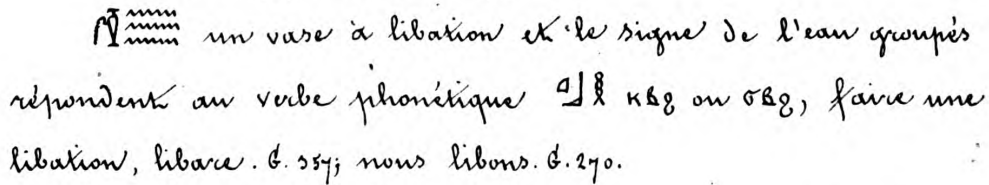 𓏁𓈗 un vase à libation et le signe de l'eau groupés
répondent au verbe phonétique 𓈎𓃀𓎛 ⲕⲃϩ ou ϭⲃϩ, faire une
libation, libare. G. 357; nous libons. G. 270.